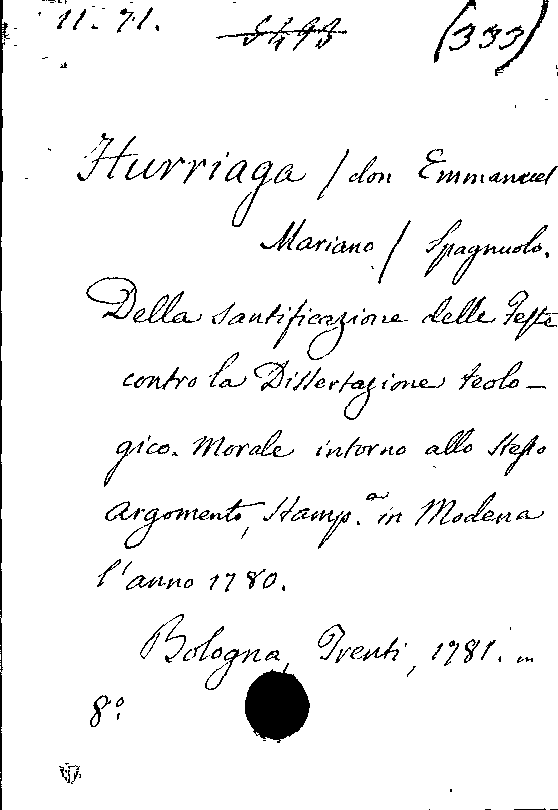 11. 71. 5493 (333)
Hurriaga / don Emmanuel
Mariano / Spagnuolo.
Della santificazione delle Feste
contro la Dissertazione teolo-
gico. Morale intorno allo stesso
argomento, stamp.a in Modena
l'anno 1780.
Bologna, Trenti, 1781. in
8º.